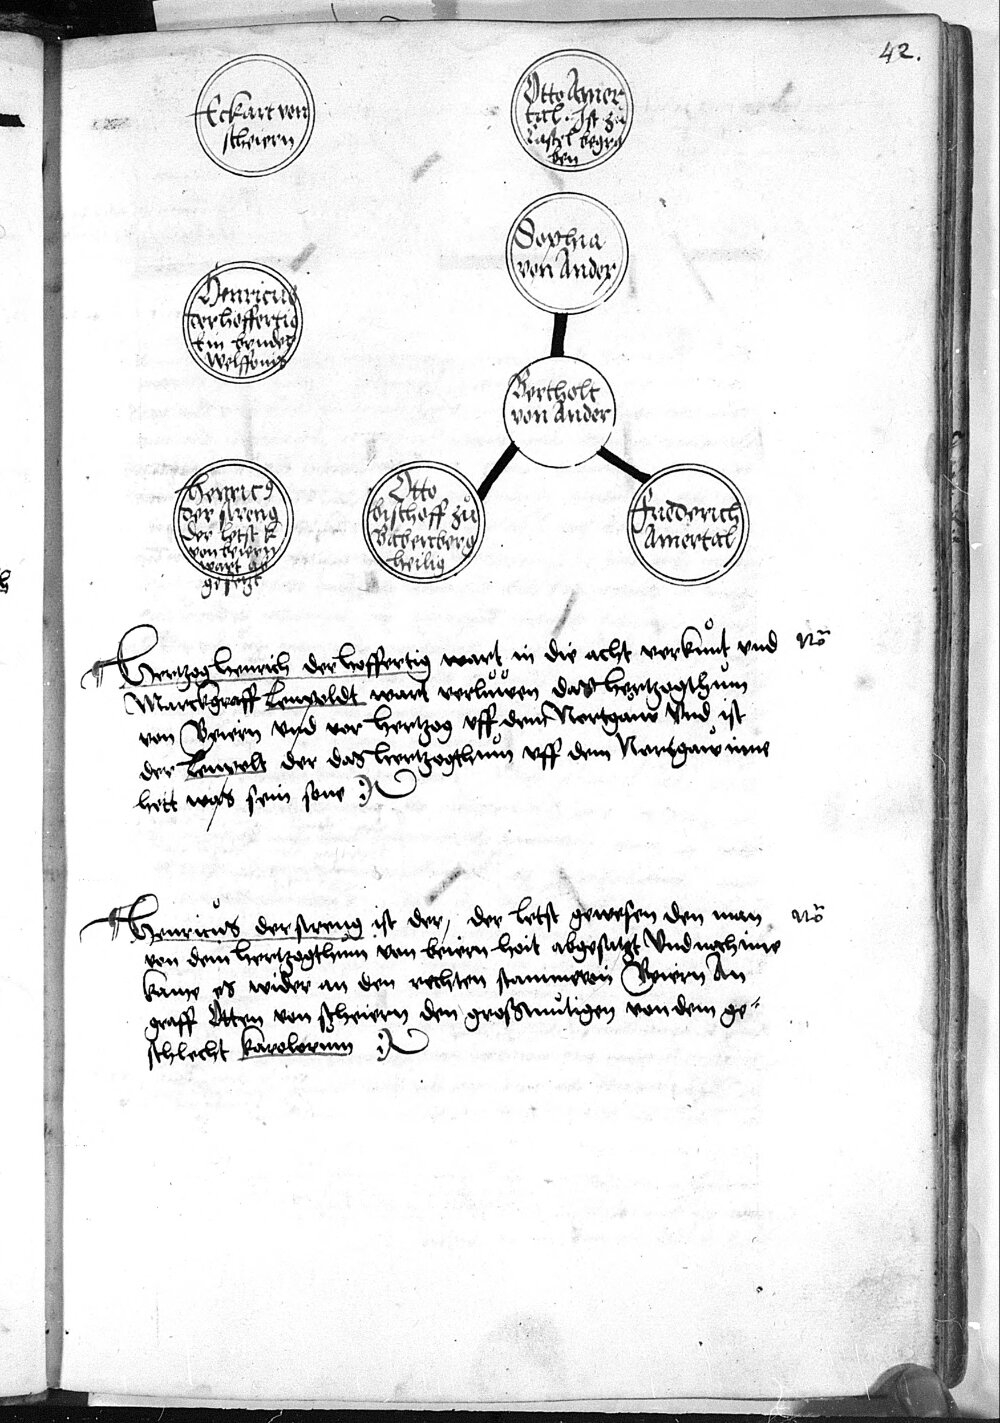 42.
Eckart von
scheiern
Otto Amer
tal. Ist zu
Castel begra
ben
Sophia
von Ander
Henricus
der hoffertig
ein bruder
welffonis
Bertholt
von Ander
Henricus
der streng
der letst h
von beiern
wart ab
gesetzt
Otto
bischoff zů
Babenberg
heilig
Friderich
Amertal
Hertzog henrich der hoffertig wart in die acht verkůnt vnd
No
Marckgraff Leupoldt wart verluwen das hertzogthům
von Beiern vnd vor hertzog vff dem Nortgaw Vnd ist
der Leupolt der das hertzogthům vff dem Nortgaw inne
hett was sein sone
Henricus der streng ist der, der letst gewesen den man
No
von dem hertzogthům von beiern hait abgesatzt Vnd noch ime
kame es wider an den rechten stamme von Beiern An
graff Otten von scheiern den grossmůtigen von dem ge=
schlecht karolorum